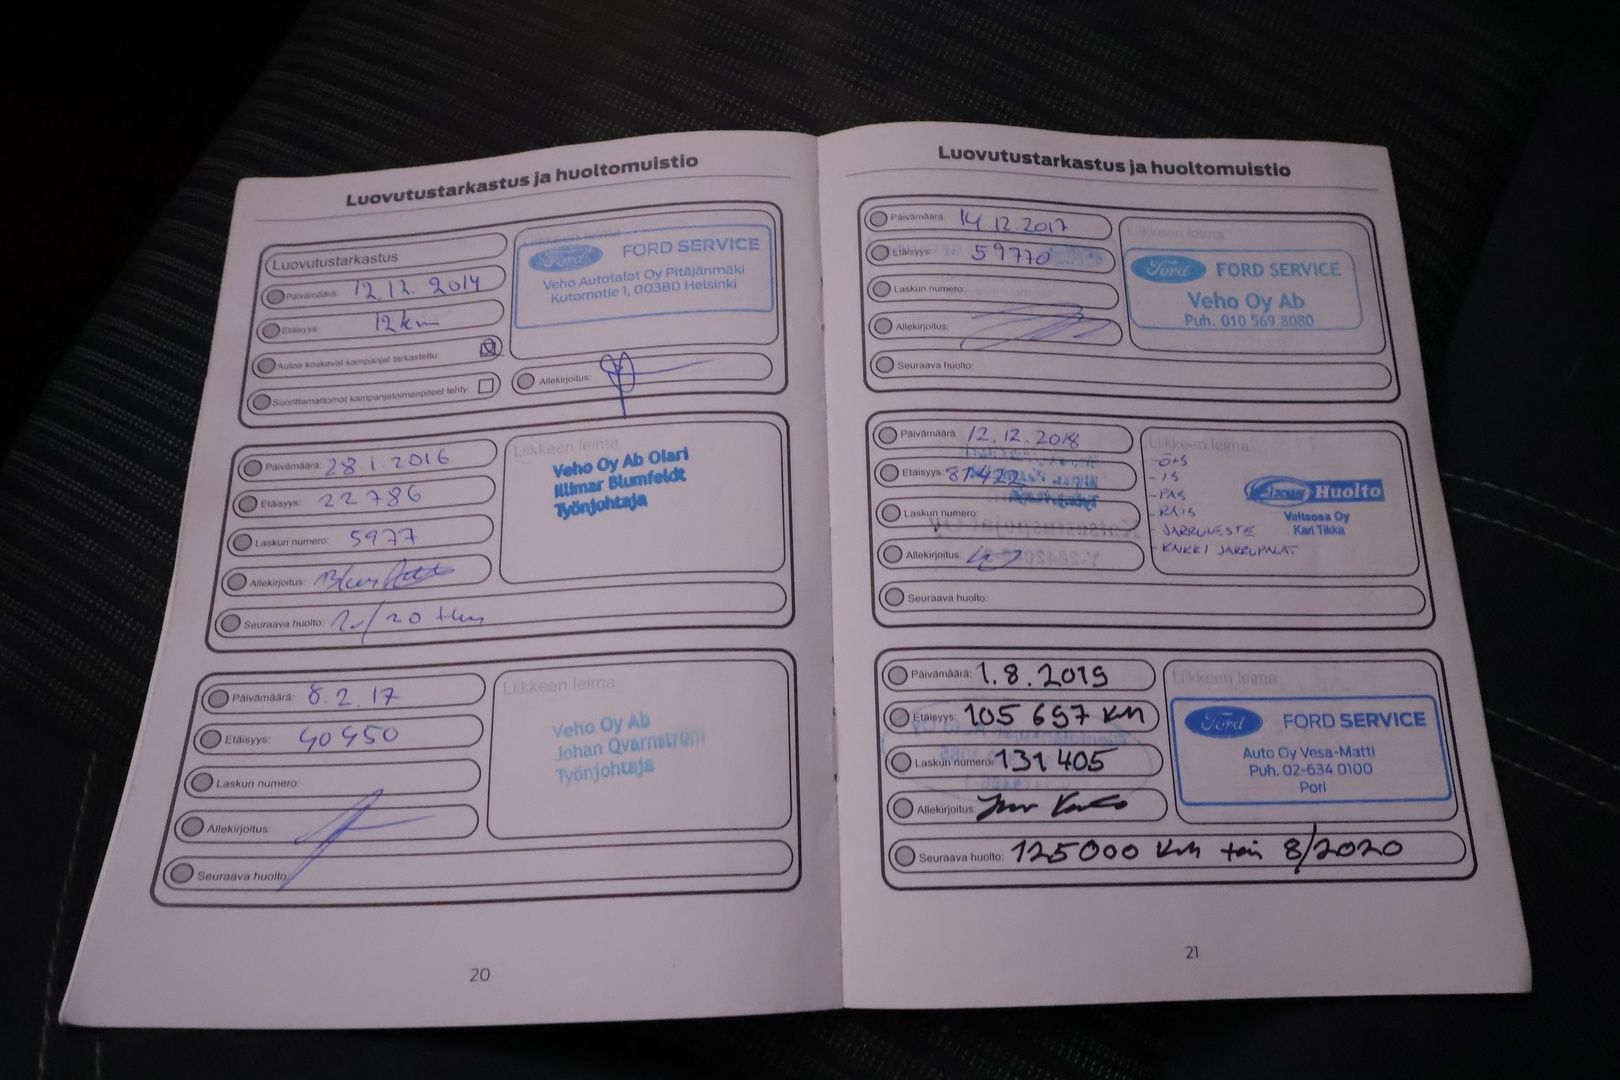 Luovutustarkastus ja huoltomuistio
Luovutustarkastus
Päivämäärä: 12.12.2014
Etäisyys: 12km
Autoa koskevat kampanjat tarkastettu:
Suorittamattomat kampanjatoimenpiteet tehty:
Liikkeen leima
Ford FORD SERVICE
Veho Autotalot Oy Pitäjänmäki
Kutomotie 1, 00380 Helsinki
Allekirjoitus:
Päivämäärä: 28.1.2016
Etäisyys: 22786
Laskun numero: 5977
Allekirjoitus:
Seuraava huolto: /20 tkm
Liikkeen leima
Veho Oy Ab Olari
Illimar Blumfeldt
Työnjohtaja
Päivämäärä: 8.2.17
Etäisyys: 40450
Laskun numero:
Allekirjoitus:
Seuraava huolto:
Liikkeen leima
Veho Oy Ab
Johan Qvarnström
Työnjohtaja
20
Luovutustarkastus ja huoltomuistio
Päivämäärä: 14.12.2017
Etäisyys: 59770
Laskun numero:
Allekirjoitus:
Seuraava huolto:
Liikkeen leima
Ford FORD SERVICE
Veho Oy Ab
Puh. 010 569 8080
Päivämäärä: 12.12.2018
Etäisyys: 81422
Laskun numero:
Allekirjoitus:
Seuraava huolto:
Liikkeen leima
-Ö+S
-IS
-PAS
-RAIS
-JARRUNESTE
-KAIKKI JARRUPALAT
Fixus Huolto
Veltaosa Oy
Kari Tikka
Päivämäärä: 1.8.2019
Etäisyys: 105 697 KM
Laskun numero: 131405
Allekirjoitus:
Seuraava huolto: 125000 KM tai 8/2020
Liikkeen leima
Ford FORD SERVICE
Auto Oy Vesa-Matti
Puh. 02-634 0100
Pori
21